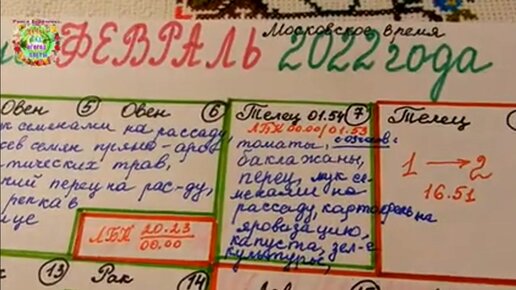 Московское время
ФЕВРАЛЬ 2022 года
Овен 5 Овен 6
к семенами на рассаду,
сев семян пряно-аро-
тических трав,
кий перец на рас-ду,
репка в
ице
ЛБК 20.23
00.00
Телец 01.54 7
ЛБК 00.00/01.53
томаты,
баклажаны,
перец, лук се-
менами на
рассаду, картофель на
яровизацию,
капуста, зел-е
культуры,
Телец
1 → 2
16.51
13 Рак 14